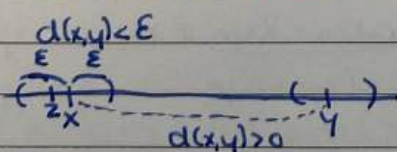 d(x,y)<ε
ε ε
( z x ) ( y )
d(x,y)>0